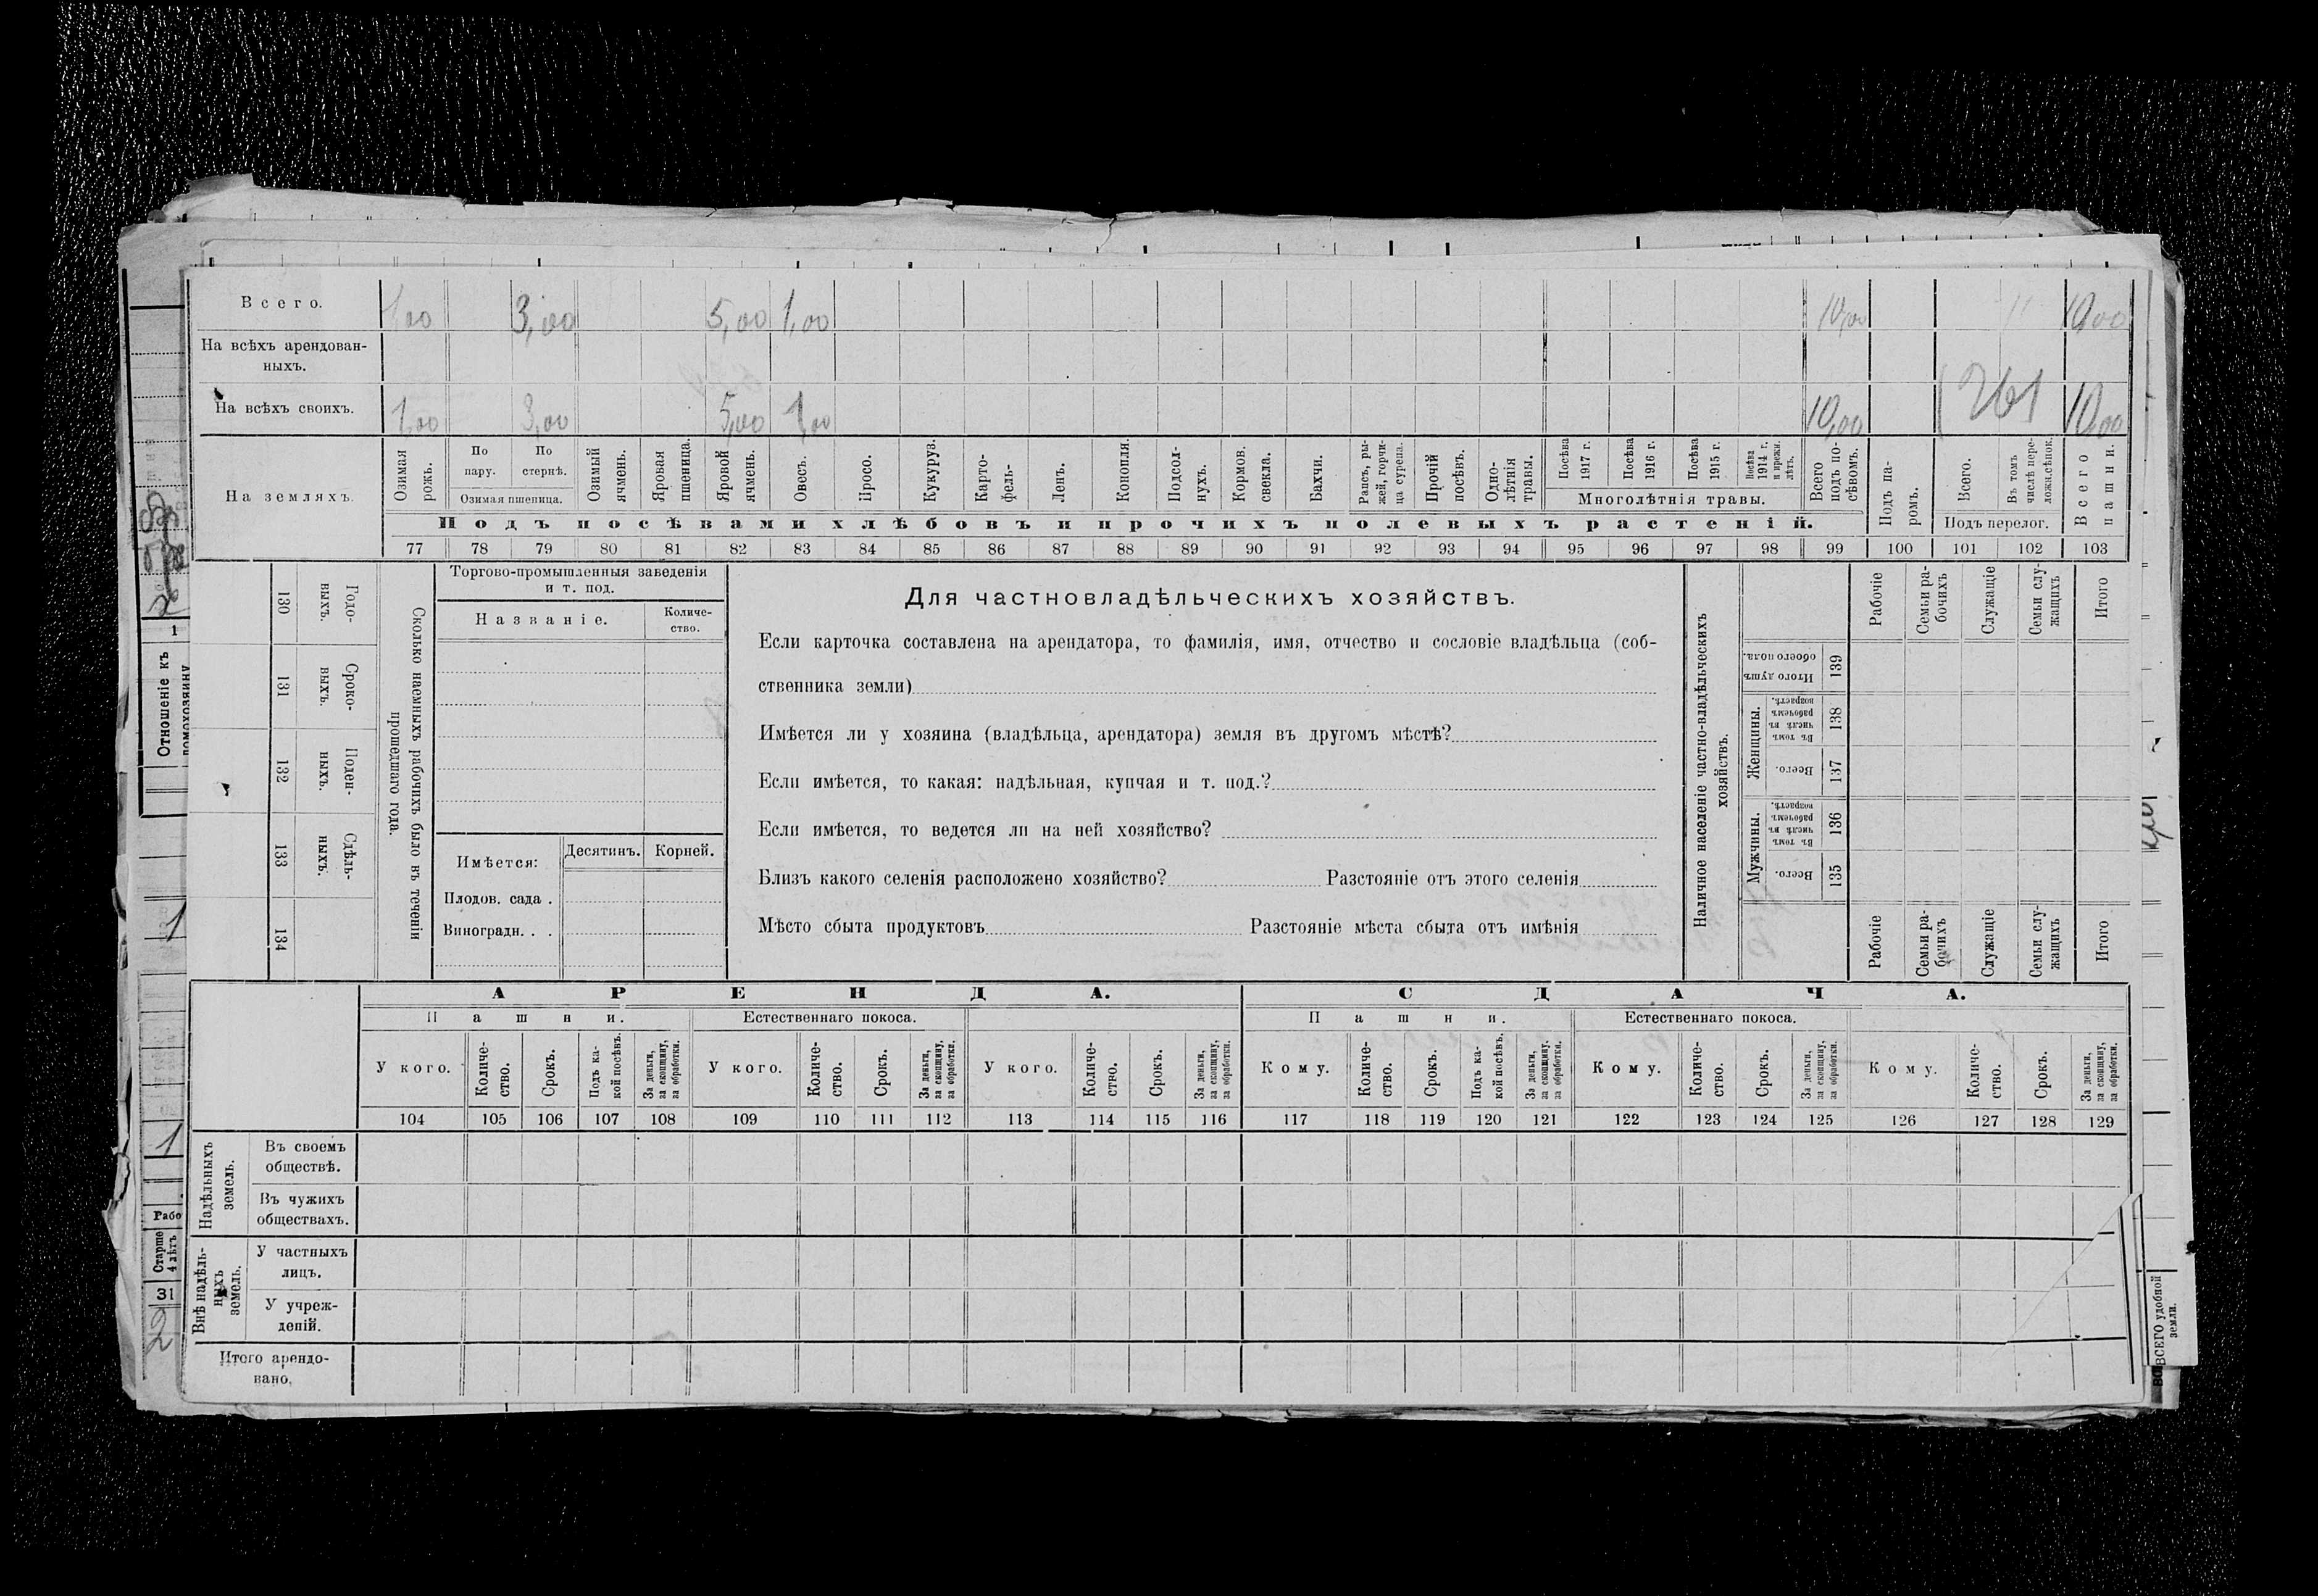 Всего. 1,00 3,00 5,00 1,00 10,00 " 10,00
На всѣхъ арендован-
ныхъ.
На всѣхъ своихъ. 1,00 3,00 5,00 1,00 10,00 261 10,00
На земляхъ.
Озимая рожь.
По пару.
По стернѣ.
Озимая пшеница.
Озимый ячмень.
Яровая пшеница.
Яровой ячмень.
Овесъ.
Просо.
Кукуруз.
Карто-
фель-
Ленъ.
Конопля.
Подсол-
нухъ.
Кормов.
свекла.
Бахчи.
Рапсъ, ры-
жей, горчи-
ца сурепа.
Прочій
посѣвъ.
Одно-
лѣтнія
травы.
Посѣва
1917 г.
Посѣва
1916 г.
Посѣва
1915 г.
Посѣва
1914 г.
и прежн.
лѣтъ.
Многолѣтнія травы.
Всего
подъ по-
сѣвомъ.
Подъ па-
ромъ.
Всего.
Въ томъ
числѣ пере-
ложн.сѣнок.
Подъ перелог.
Всего
пашни.
Подъ посѣвами хлѣбовъ и прочихъ полевыхъ растеній.
77 78 79 80 81 82 83 84 85 86 87 88 89 90 91 92 93 94 95 96 97 98 99 100 101 102 103
130 Годо-
ныхъ.
131 Сроко-
выхъ.
132 Поден-
ныхъ.
133 Сдѣль-
ныхъ.
134
Сколько наемныхъ рабочихъ было въ теченіи
прошедшаго года.
Торгово-промышленныя заведенія
и т. под.
Названіе.
Количе-
ство.
Имѣется: Десятинъ. Корней.
Плодов. сада .
Виноградн. . .
Для частновладѣльческихъ хозяйствъ.
Если карточка составлена на арендатора, то фамилія, имя, отчество и сословіе владѣльца (соб-
ственника земли)
Имѣется ли у хозяина (владѣльца, арендатора) земля въ другомъ мѣстѣ?
Если имѣется, то какая: надѣльная, купчая и т. под.?
Если имѣется, то ведется ли на ней хозяйство?
Близъ какого селенія расположено хозяйство? Разстояніе отъ этого селенія
Мѣсто сбыта продуктовъ Разстояніе мѣста сбыта отъ имѣнія
Наличное населеніе частно-владѣльческихъ
хозяйствъ.
Рабочіе
Семьи ра-
бочихъ
Служащіе
Семьи слу-
жащихъ
Итого
Итого душъ
обоего пола.
139
Женщины.
Въ томъ
числѣ въ
рабочемъ
возрастѣ.
138
Всего.
137
Мужчины.
Въ томъ
числѣ въ
рабочемъ
возрастѣ.
136
Всего.
135
Рабочіе
Семьи ра-
бочихъ
Служащіе
Семьи слу-
жащихъ
Итого
АРЕНДА. СДАЧА.
Пашни. Естественнаго покоса. Пашни. Естественнаго покоса.
У кого.
Количе-
ство.
Срокъ.
Подъ ка-
кой посѣвъ.
За деньги,
за скопщину,
за обработки.
У кого.
Количе-
ство.
Срокъ.
За деньги,
за скопщину,
за обработки.
У кого.
Количе-
ство.
Срокъ.
За деньги,
за скопщину,
за обработки.
Кому.
Количе-
ство.
Срокъ.
Подъ ка-
кой посѣвъ.
За деньги,
за скопщину.
за обработки.
Кому.
Количе-
ство.
Срокъ.
За деньги,
за скопщину,
за обработки.
Кому.
Количе-
ство.
Срокъ.
За деньги,
за скопщину,
за обработки.
104 105 106 107 108 109 110 111 112 113 114 115 116 117 118 119 120 121 122 123 124 125 126 127 128 129
Надѣльныхъ
земель.
Въ своемъ
обществѣ.
Въ чужихъ
обществахъ.
Внѣ надѣль-
ныхъ
земель.
У частныхъ
лицъ.
У учреж-
деній.
Итого арендо-
вано.
1
Отношеніе къ
домохозяину
1
1
Рабо
Старше
4 лѣтъ
31
2
ВСЕГО удобной
земли.